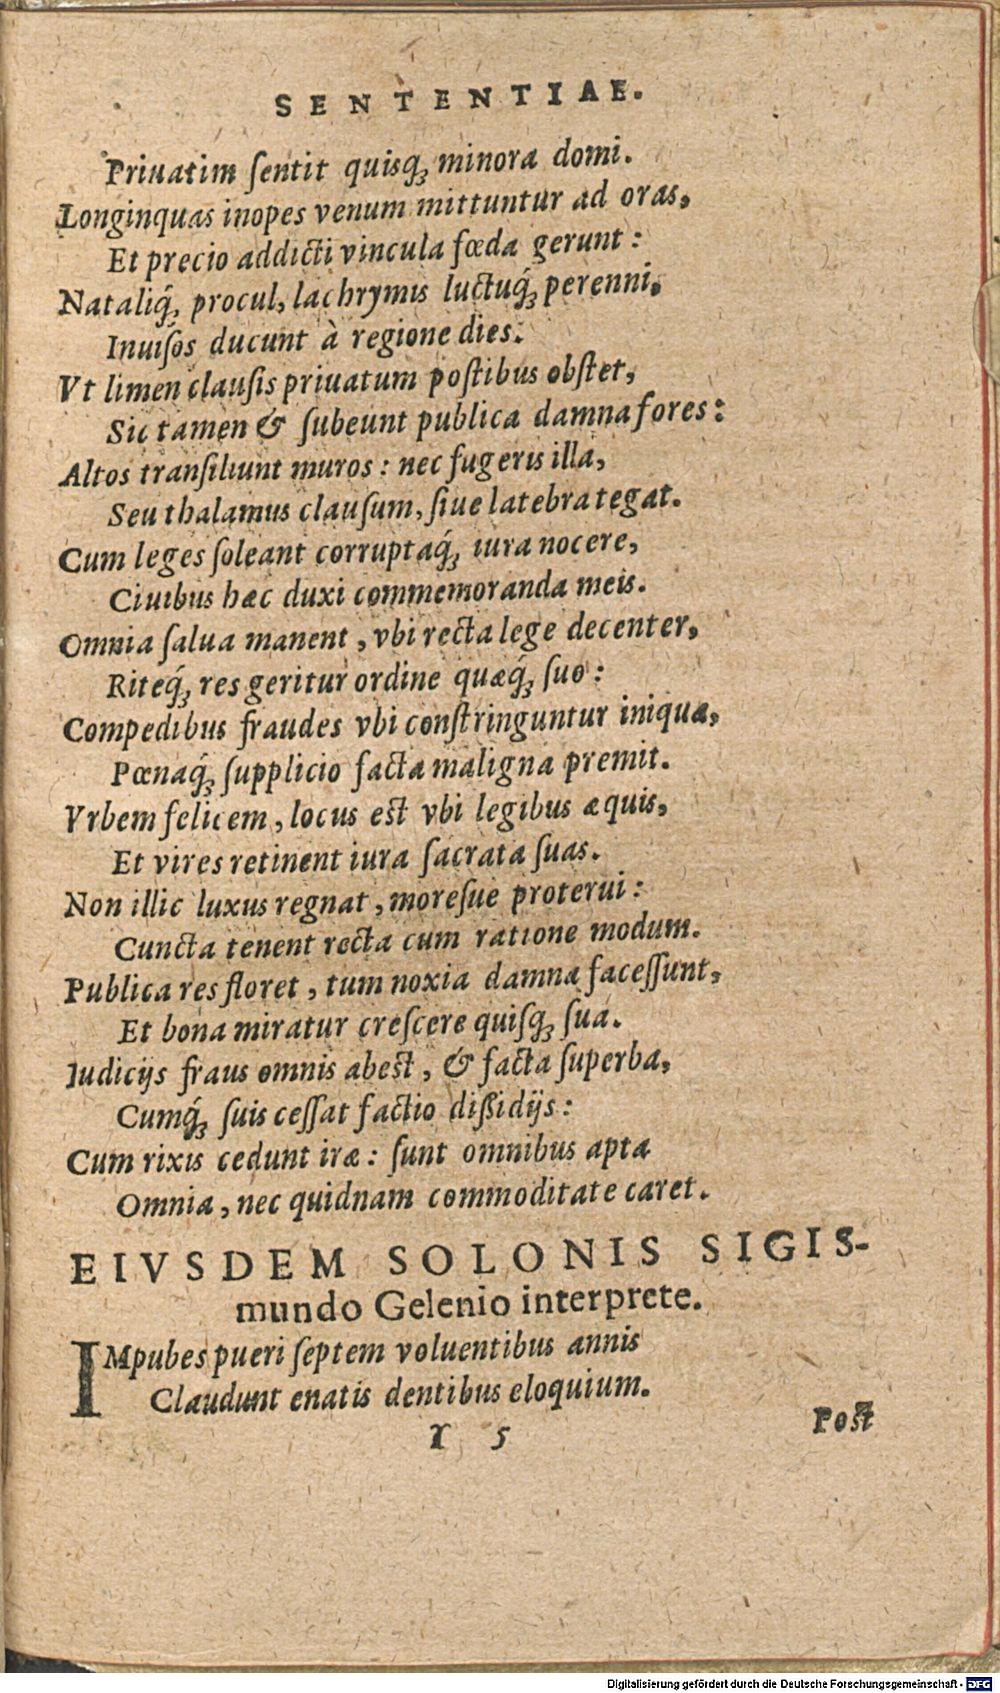 SENTENTIAE.
Priuatim ſentit quisq́ꝫ minora domi.
Longinquas inopes venum mittuntur ad oras,
Et precio addicti vincula fœda gerunt:
Nataliq́ꝫ procul, lachrymis luctuq́ꝫ perenni,
Inuiſos ducunt à regione dies.
Vt limen clauſis priuatum poſtibus obſtet,
Sic tamen & ſubeunt publica damna fores:
Altos tranſiliunt muros: nec fugeris illa,
Seu thalamus clauſum, ſiue latebra tegat.
Cum leges ſoleant corruptaq́ꝫ iura nocere,
Ciuibus hæc duxi commemoranda meis.
Omnia ſalua manent, vbi recta lege decenter,
Riteq́ꝫ res geritur ordine quæq́ꝫ ſuo:
Compedibus fraudes vbi conſtringuntur iniquæ,
Pœnaq́ꝫ ſupplicio facta maligna premit.
Vrbem felicem, locus eſt vbi legibus æquis,
Et vires retinent iura ſacrata ſuas.
Non illic luxus regnat, moreſue proterui:
Cuncta tenent recta cum ratione modum.
Publica res floret, tum noxia damna faceſſunt,
Et bona miratur creſcere quiſqꝫ ſua.
Iudicijs fraus omnis abeſt, & facta ſuperba,
Cumq́ꝫ ſuis ceſſat factio diſſidijs:
Cum rixis cedunt iræ: ſunt omnibus apta
Omnia, nec quidnam commoditate caret.
EIVSDEM SOLONIS SIGIS-
mundo Gelenio interprete.
IMpubes pueri ſeptem voluentibus annis
Claudunt enatis dentibus eloquium.
Y 5
Poſt
Digitalisierung gefördert durch die Deutsche Forschungsgemeinschaft - DFG